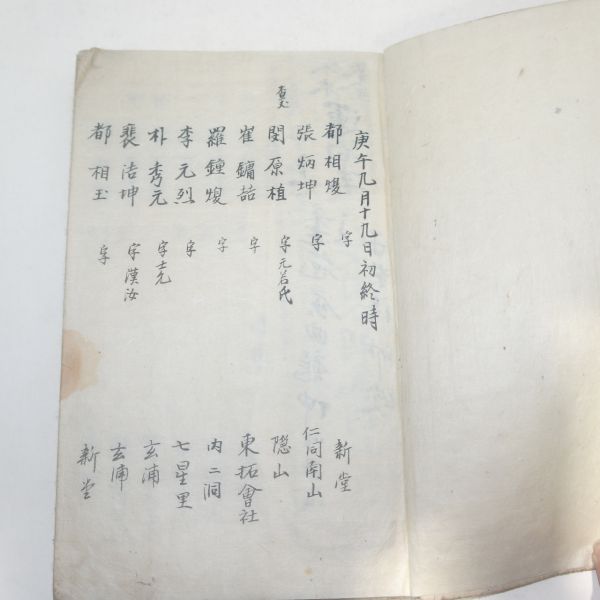 庚午九月十九日初終時
都相煥 字 新堂
張炳坤 字 仁同南山
閔原植 字元若氏 隠山
崔鏞喆 字 東拓會社
羅鍾煥 字 內二洞
李元烈 字 七星里
朴秀元 字士允 玄浦
裵浩坤 字漢汝 玄浦
都相玉 字 新堂